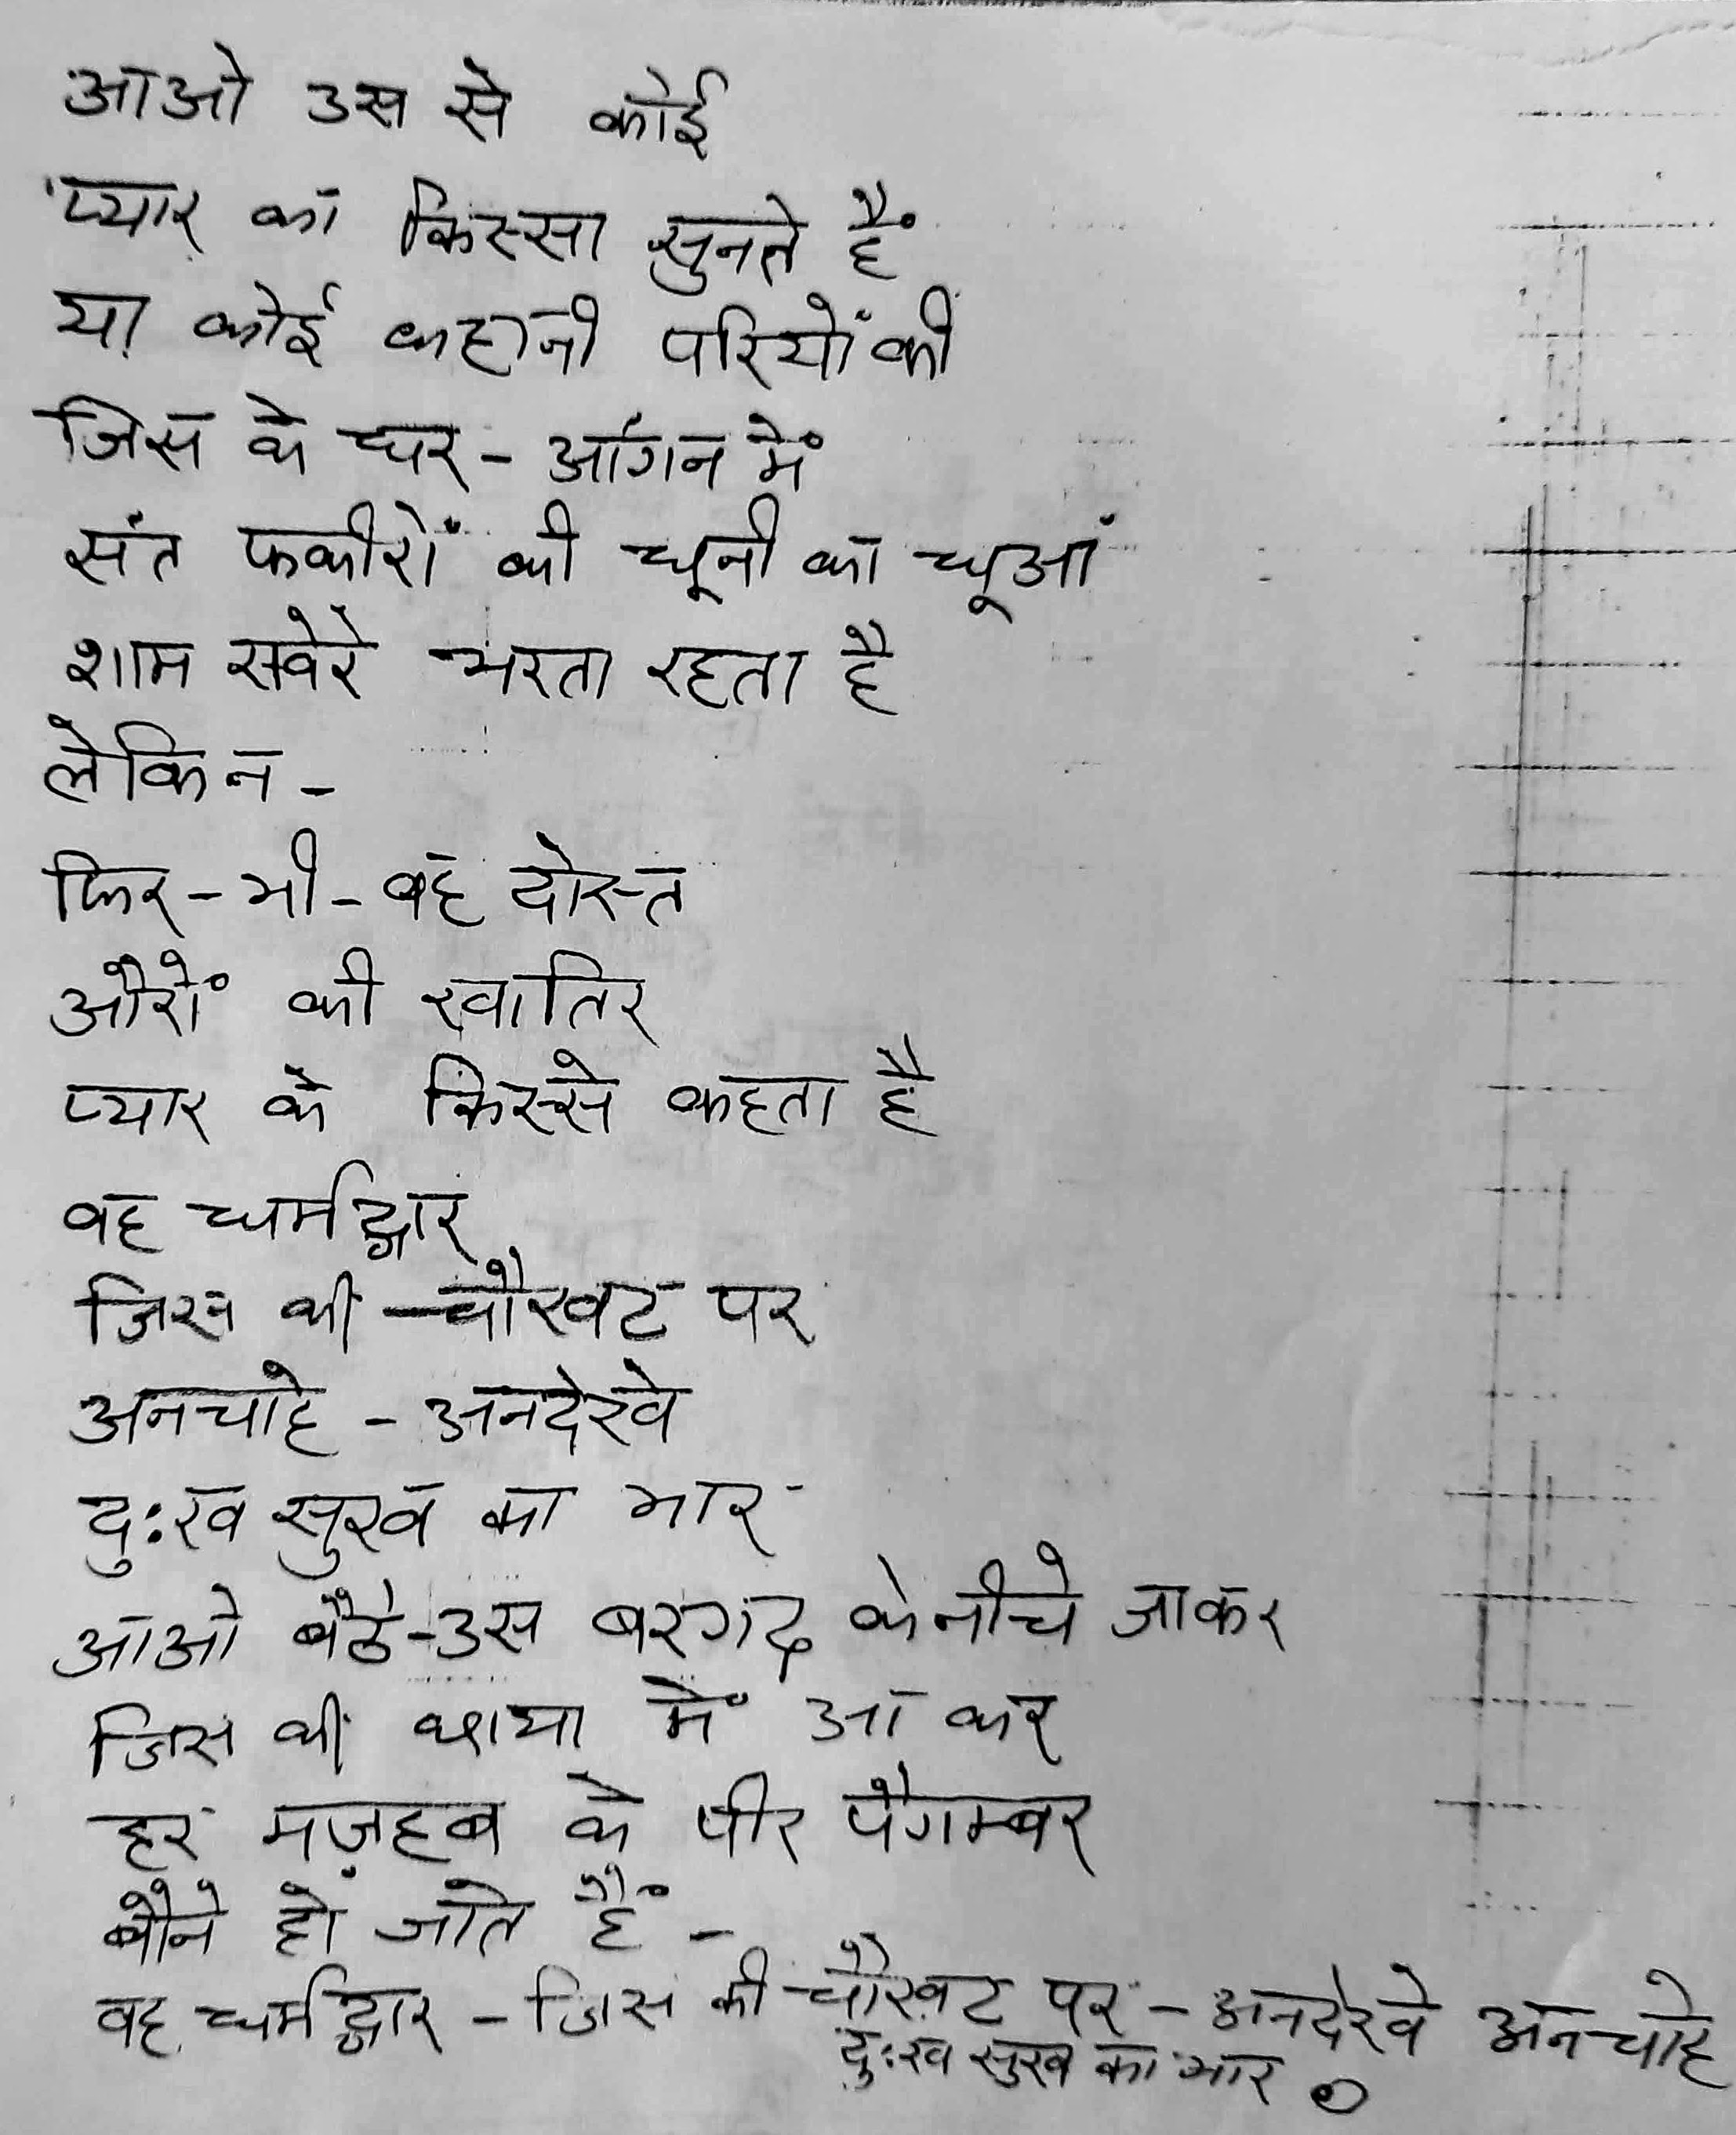 आओ उस से कोई
प्यार का किस्सा सुनते हैं
या कोई कहानी परियों की
जिस के घर - आंगन में
संत फकीरों की धूनी का धूआं
शाम सवेरे भरता रहता है
लेकिन -
फिर - भी - वह दोस्त
औरों की खातिर
प्यार के किस्से कहता है
वह धर्मद्वार
जिस की चौखट पर
अनचाहे - अनदेखे
दुःख सुख का भार
आओ बैठे - उस बरगद के नीचे जाकर
जिस की छाया में आ कर
हर मज़हब के पीर पैगम्बर
बौने हो जाते हैं -
वह धर्मद्वार - जिस की चौखट पर - अनदेखे अनचाहे
दुःख सुख का भार ०